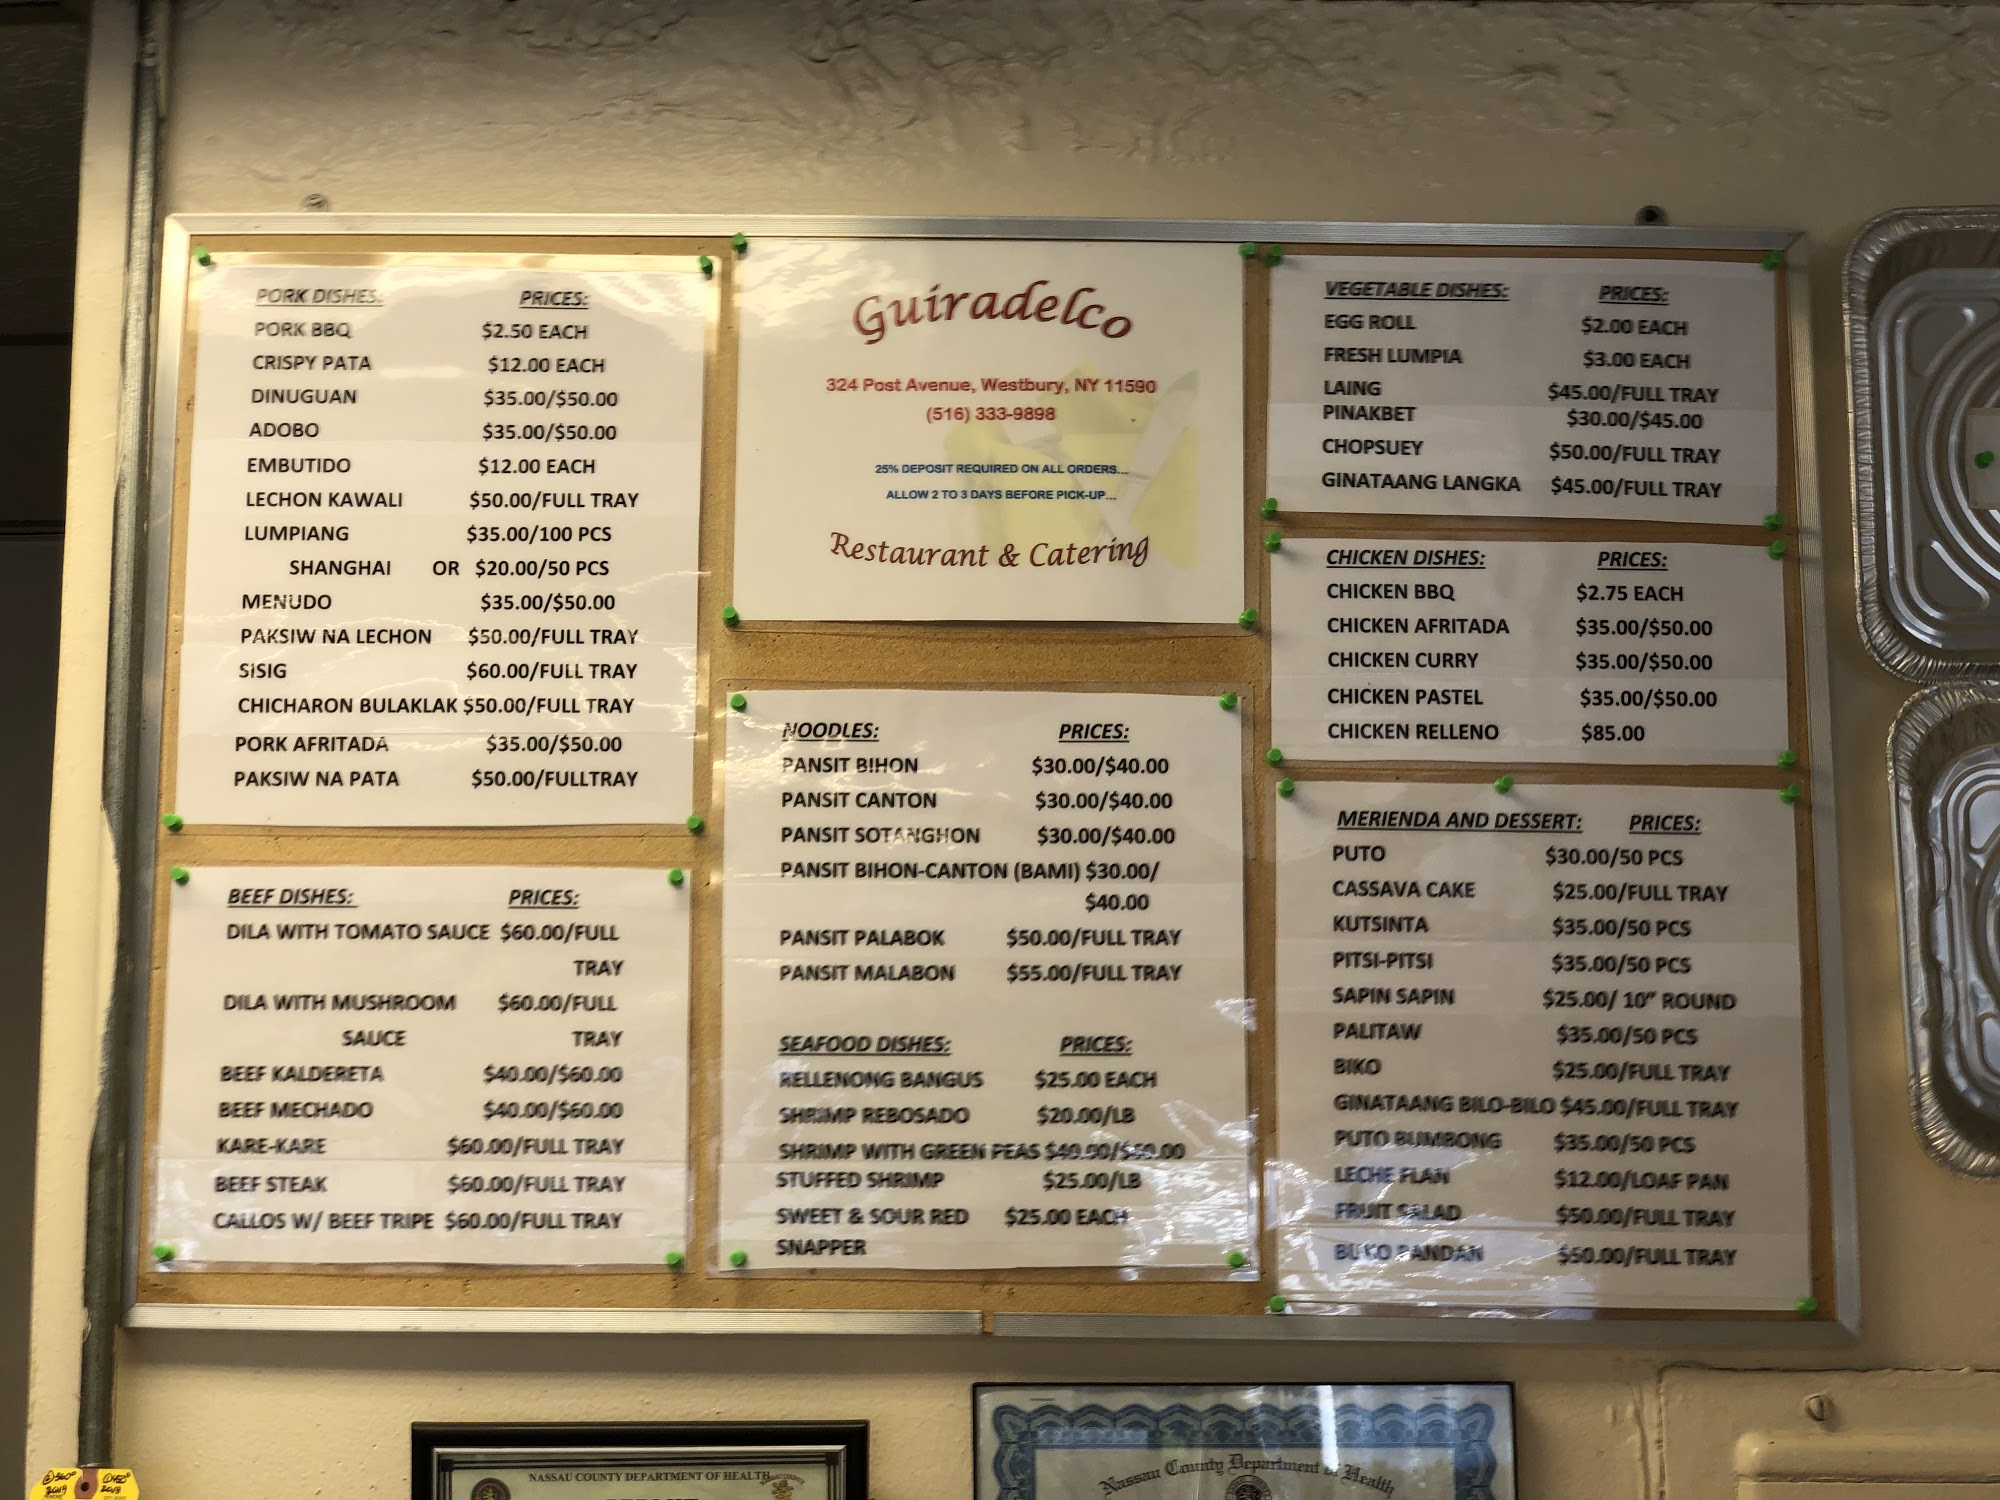 PORK DISHES: PRICES:
PORK BBQ $2.50 EACH
CRISPY PATA $12.00 EACH
DINUGUAN $35.00/$50.00
ADOBO $35.00/$50.00
EMBUTIDO $12.00 EACH
LECHON KAWALI $50.00/FULL TRAY
LUMPIANG $35.00/100 PCS
SHANGHAI OR $20.00/50 PCS
MENUDO $35.00/$50.00
PAKSIW NA LECHON $50.00/FULL TRAY
SISIG $60.00/FULL TRAY
CHICHARON BULAKLAK $50.00/FULL TRAY
PORK AFRITADA $35.00/$50.00
PAKSIW NA PATA $50.00/FULLTRAY
BEEF DISHES: PRICES:
DILA WITH TOMATO SAUCE $60.00/FULL
TRAY
DILA WITH MUSHROOM $60.00/FULL
SAUCE TRAY
BEEF KALDERETA $40.00/$60.00
BEEF MECHADO $40.00/$60.00
KARE-KARE $60.00/FULL TRAY
BEEF STEAK $60.00/FULL TRAY
CALLOS W/ BEEF TRIPE $60.00/FULL TRAY
Guiradelco
324 Post Avenue, Westbury, NY 11590
(516) 333-9898
25% DEPOSIT REQUIRED ON ALL ORDERS...
ALLOW 2 TO 3 DAYS BEFORE PICK-UP...
Restaurant & Catering
NOODLES: PRICES:
PANSIT BIHON $30.00/$40.00
PANSIT CANTON $30.00/$40.00
PANSIT SOTANGHON $30.00/$40.00
PANSIT BIHON-CANTON (BAMI) $30.00/
$40.00
PANSIT PALABOK $50.00/FULL TRAY
PANSIT MALABON $55.00/FULL TRAY
SEAFOOD DISHES: PRICES:
RELLENONG BANGUS $25.00 EACH
SHRIMP REBOSADO $20.00/LB
SHRIMP WITH GREEN PEAS
STUFFED SHRIMP $25.00/LB
SWEET & SOUR RED $25.00 EACH
SNAPPER
VEGETABLE DISHES: PRICES:
EGG ROLL $2.00 EACH
FRESH LUMPIA $3.00 EACH
LAING $45.00/FULL TRAY
PINAKBET $30.00/$45.00
CHOPSUEY $50.00/FULL TRAY
GINATAANG LANGKA $45.00/FULL TRAY
CHICKEN DISHES: PRICES:
CHICKEN BBQ $2.75 EACH
CHICKEN AFRITADA $35.00/$50.00
CHICKEN CURRY $35.00/$50.00
CHICKEN PASTEL $35.00/$50.00
CHICKEN RELLENO $85.00
MERIENDA AND DESSERT: PRICES:
PUTO $30.00/50 PCS
CASSAVA CAKE $25.00/FULL TRAY
KUTSINTA $35.00/50 PCS
PITSI-PITSI $35.00/50 PCS
SAPIN SAPIN $25.00/ 10" ROUND
PALITAW $35.00/50 PCS
BIKO $25.00/FULL TRAY
GINATAANG BILO-BILO $45.00/FULL TRAY
PUTO BUMBONG $35.00/50 PCS
LECHE FLAN $12.00/LOAF PAN
FRUIT SALAD $50.00/FULL TRAY
BUKO PANDAN $50.00/FULL TRAY
NASSAU COUNTY DEPARTMENT OF HEALTH
Nassau County Department of Health